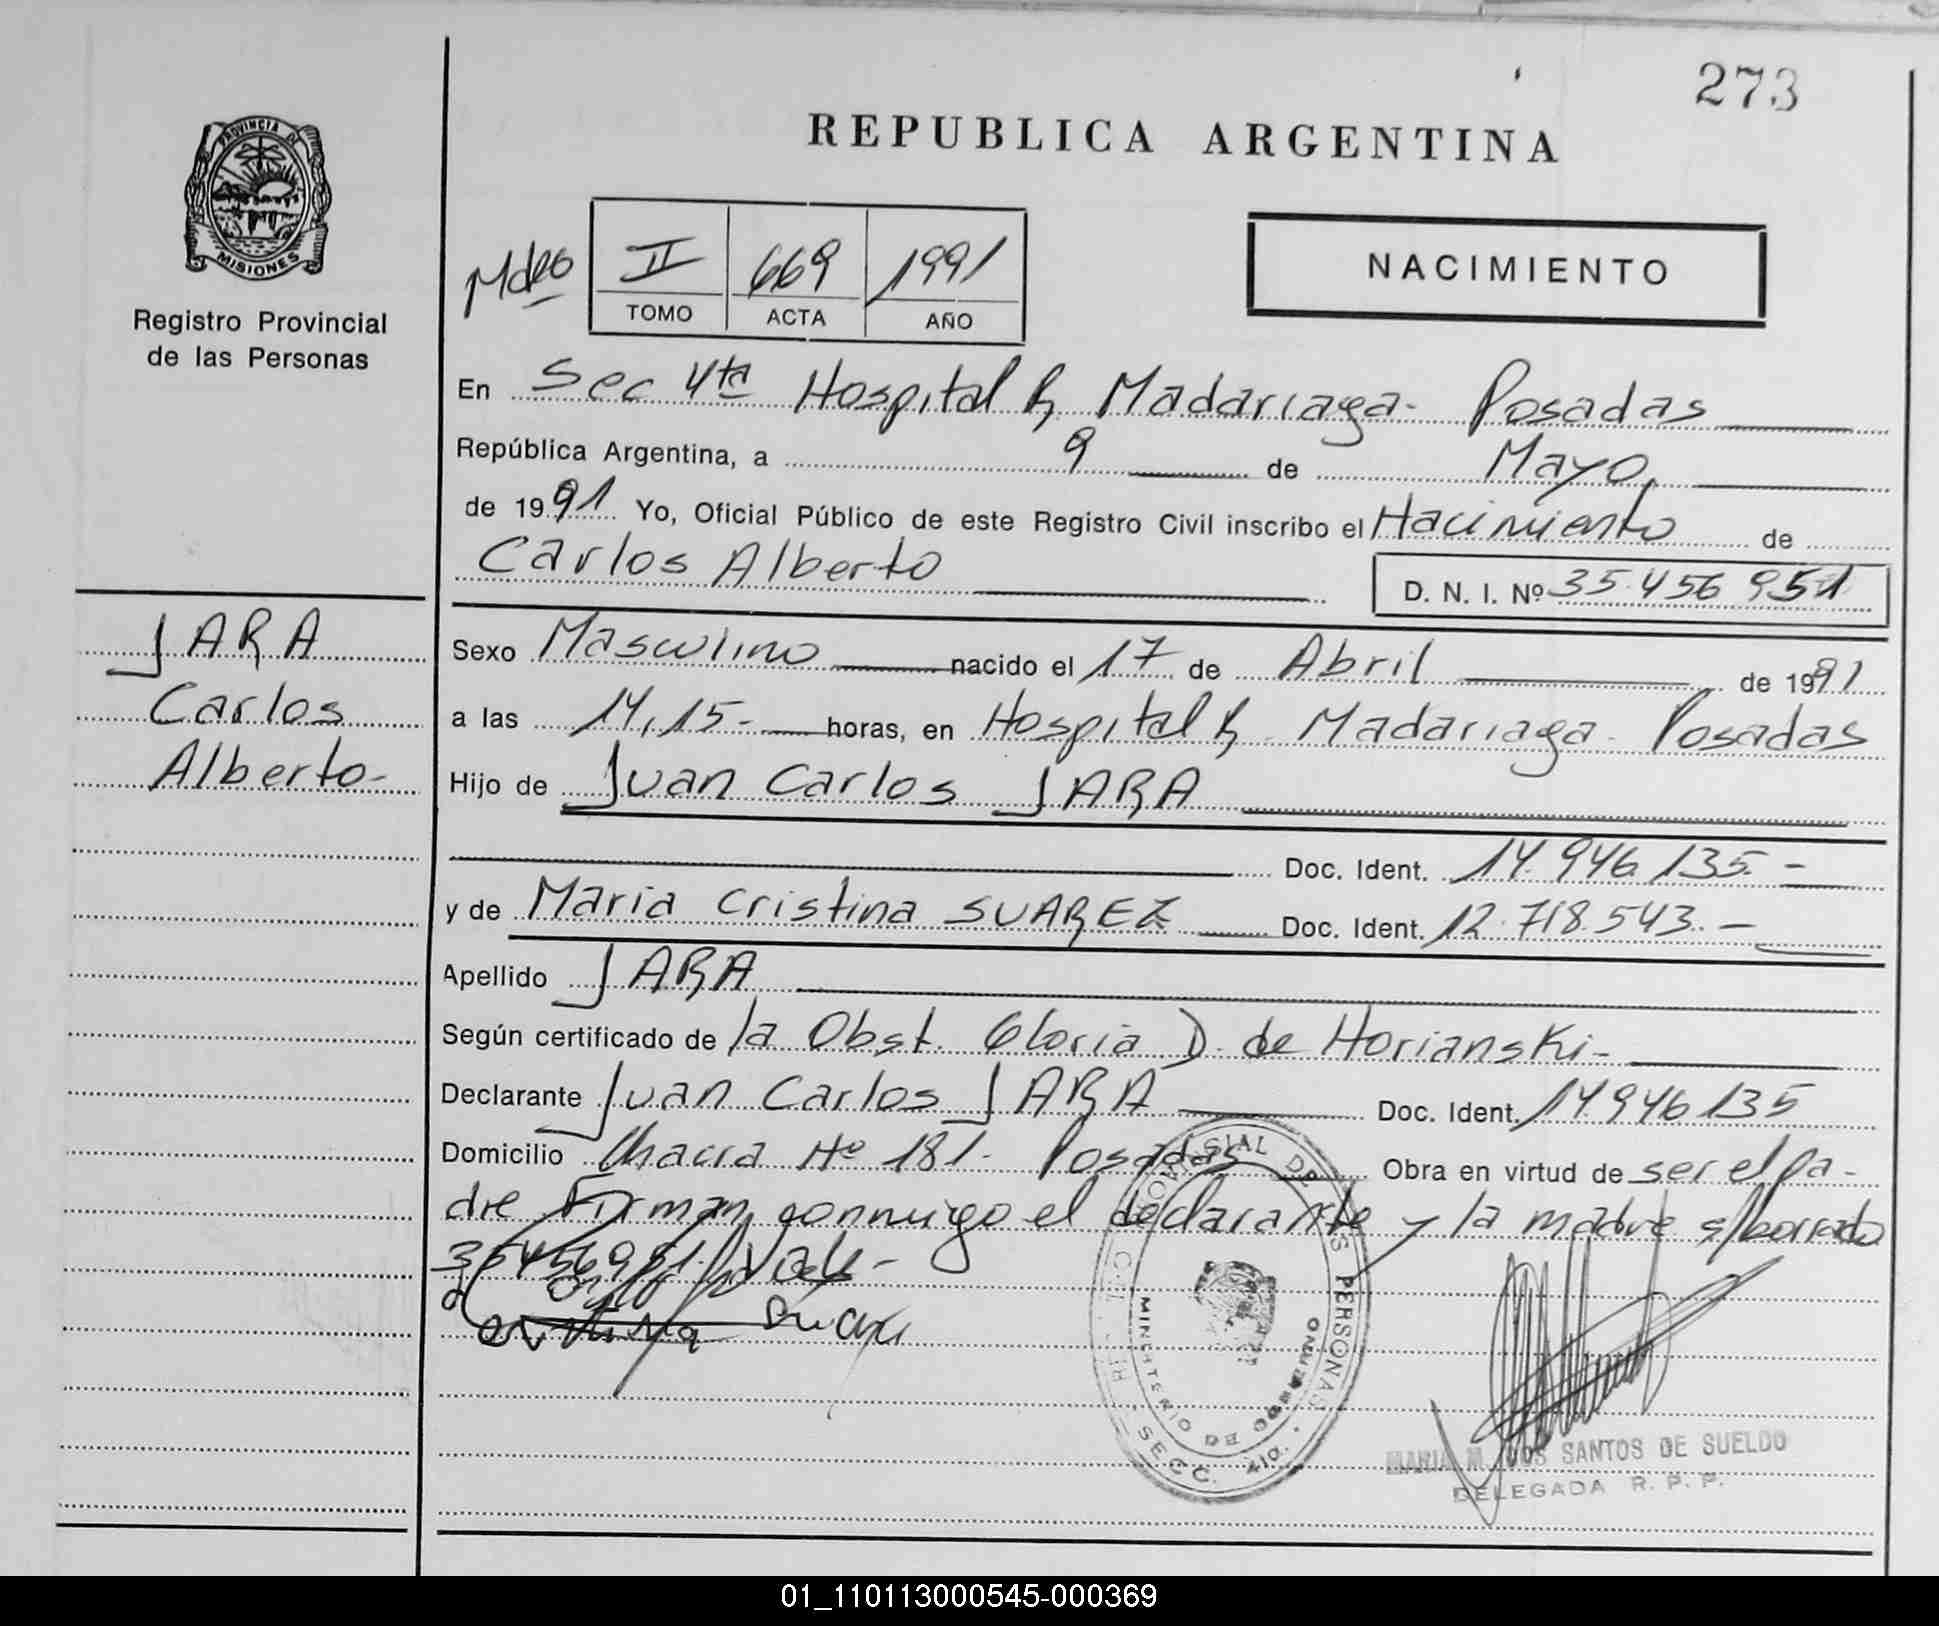 273
REPUBLICA ARGENTINA
PROVINCIA DE
MISIONES
Registro Provincial
de las Personas
Mdeo
II 669 1991
TOMO ACTA AÑO
NACIMIENTO
En Sec 4ta Hospital R, Madariaga- Posadas
República Argentina, a 9 de Mayo
de 1991 Yo, Oficial Público de este Registro Civil inscribo el Nacimiento de
Carlos Alberto
D. N. I. Nº 35.456 951
JARA
Carlos
Alberto-
Sexo Masculino nacido el 17 de Abril de 1991
a las 14,15- horas, en Hospital R, Madariaga- Posadas
Hijo de Juan Carlos JARA
Doc. Ident. 14.946.135.-
y de Maria Cristina SUAREZ Doc. Ident. 12.718.543.-
Apellido JARA
Según certificado de la Obst. Gloria D. de Horianski-
Declarante Juan Carlos JARA Doc. Ident. 14946135
Domicilio Chacra Nº 181- Posadas Obra en virtud de ser el pa-
dre Firman conmigo el declarante y la madre s/borrado
35456951. Vale-
MINISTERIO DE GOBIERNO
SECC. 4ta.
MARIA M. DOS SANTOS DE SUELDO
DELEGADA R. P. P.
01_110113000545-000369